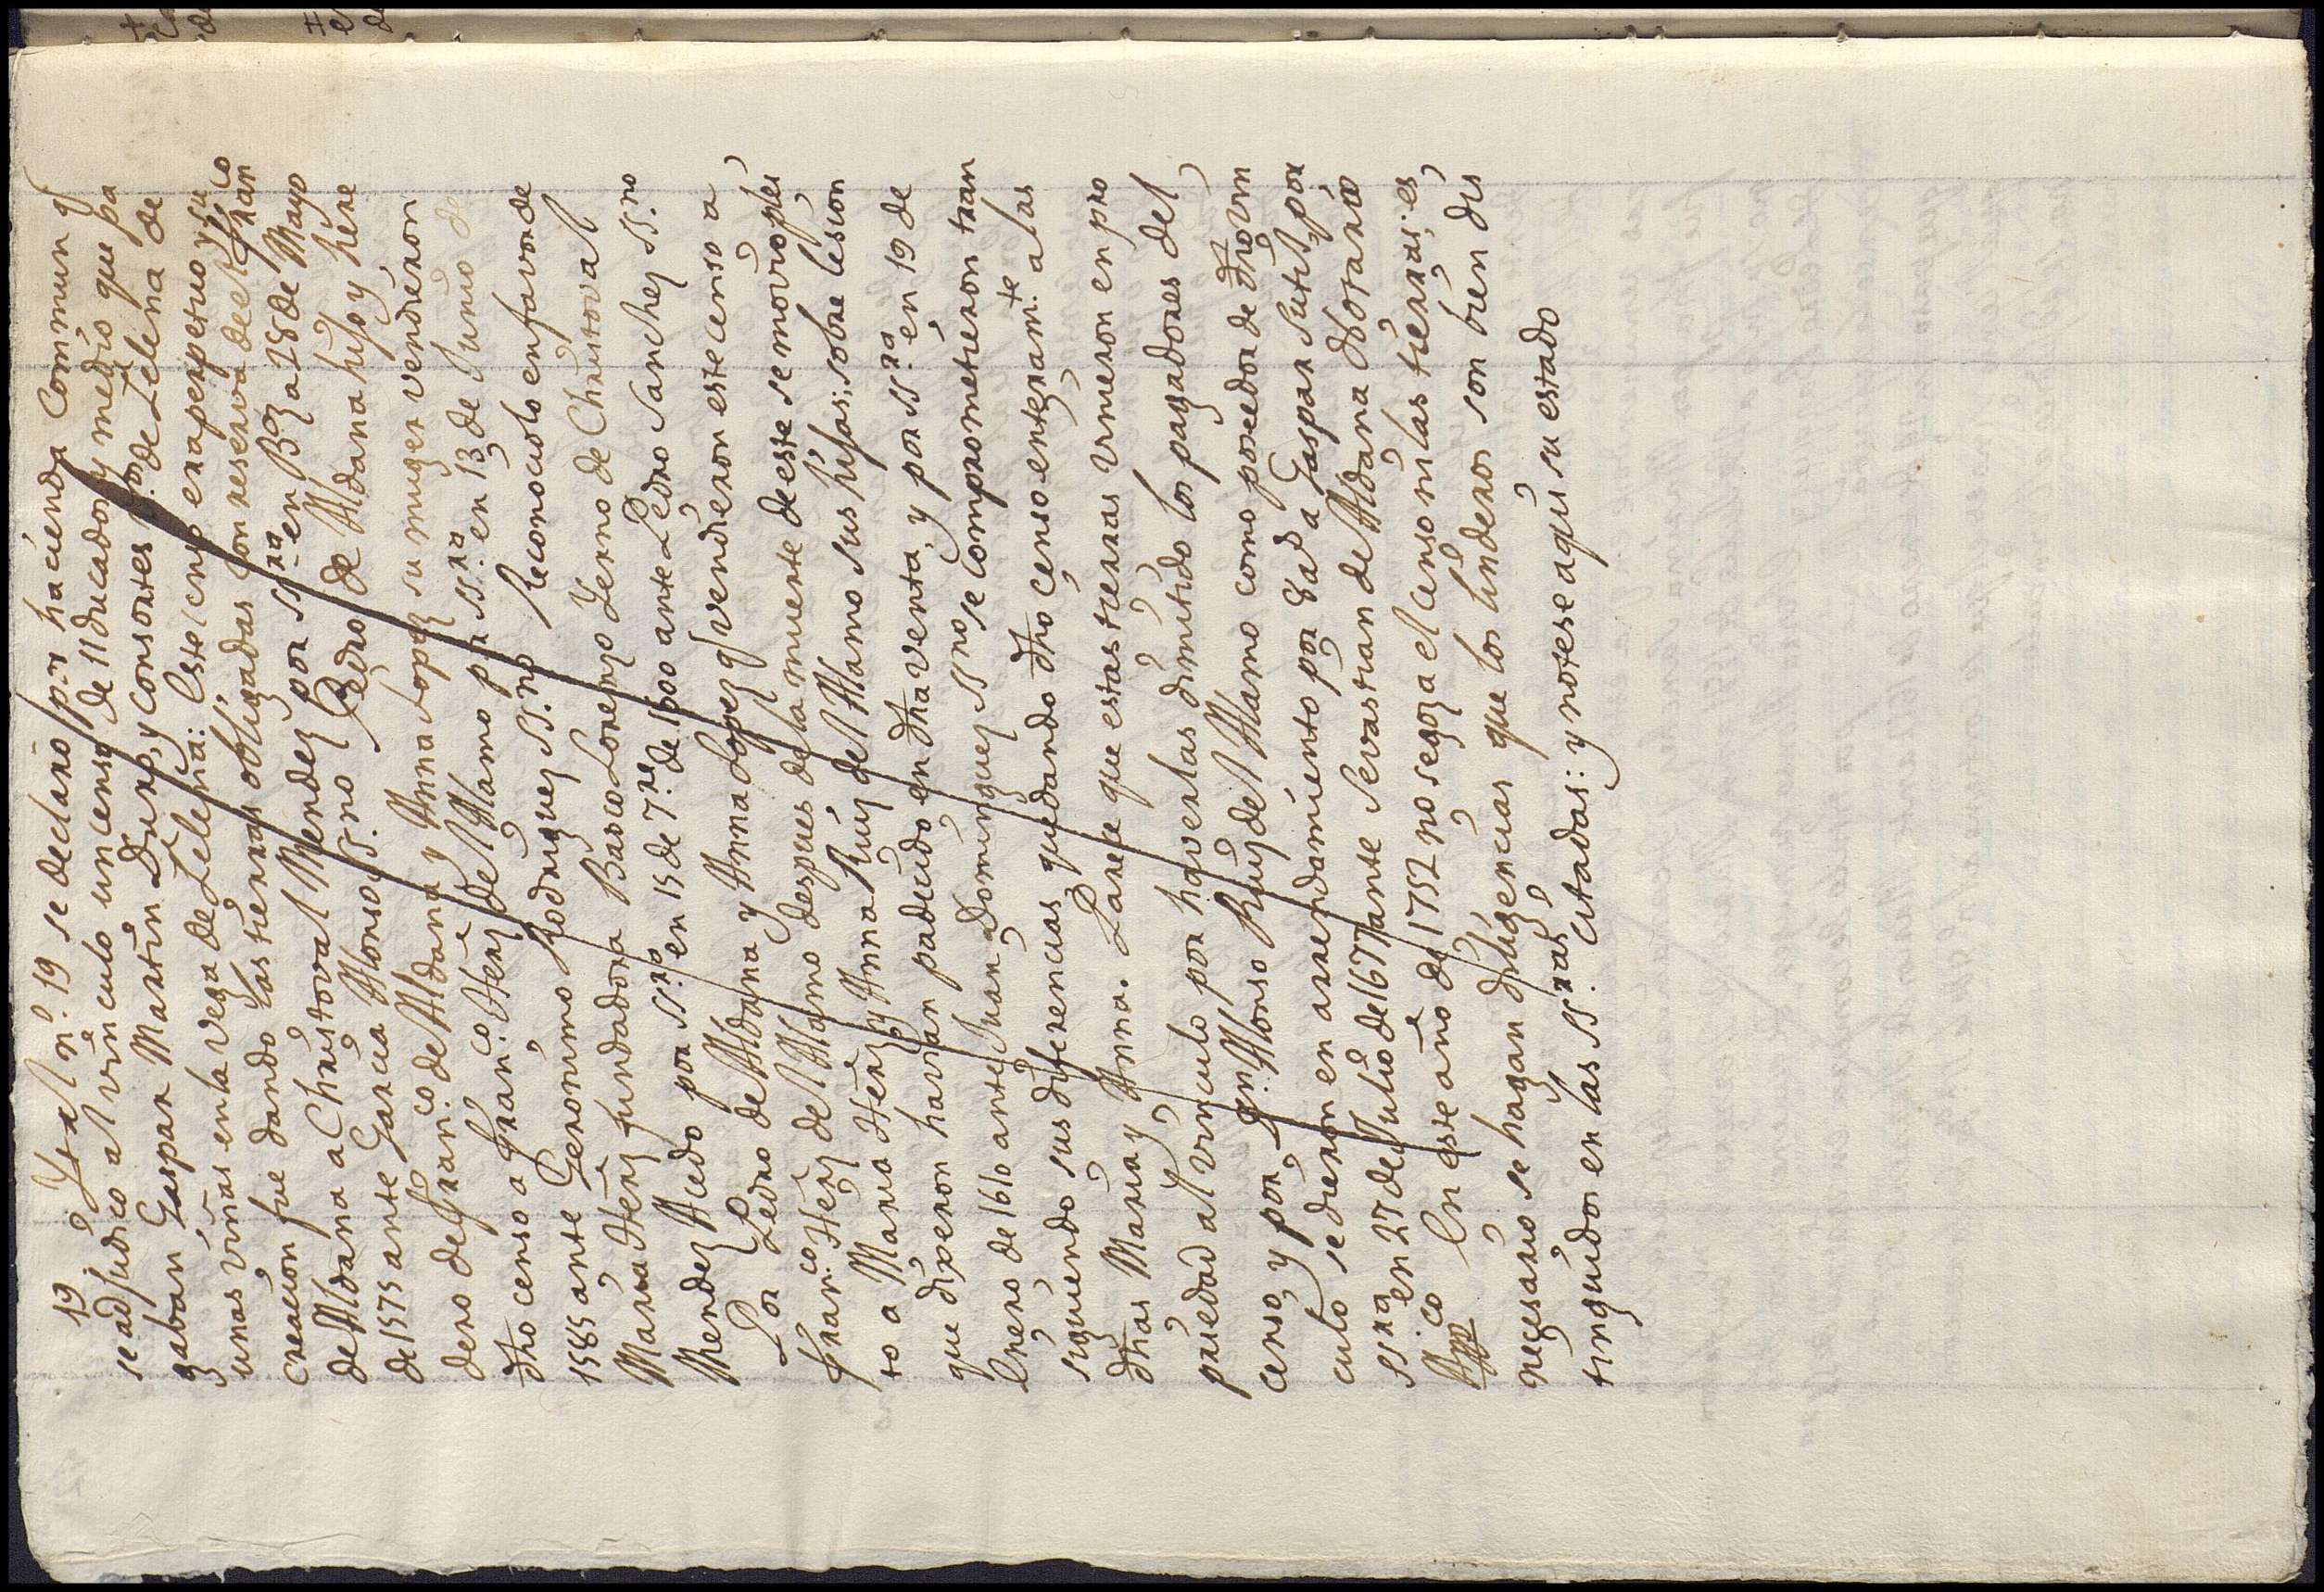 19 Y en el n.º 19 se declaró por hacienda Commun q
se adjudico al vinculo un censo de 11 ducados y medio que pa
gaban Gaspar Martin Duro, y consortes v.os de Zelema de
unas viñas en la vega de Zelema: Este censo era perpetuo y su
creacion fue dando las tierras obligadas con reserva de el Fran.co
de Aldana a Christoval Mendez por ss.ra en a 28 de Mayo
de 1575 ante Garcia Alonso ss.no Pedro de Aldana hijo y here
dero de Fran.co de Aldana y Anna Lopez su muger vendieron
dho censo a Fran.co Hern̄z del Alamo por ss.ra en 13 de Junio de
1585 ante Geronimo Rodriguez ss.no Reconociolo en favor de
Maria Hern̄z fundadora Barco Lorenzo Yerno de Christoval
Mendez Acedo por ss.ra en 15 de 7.re de 1600 ante Pedro Sanchez ss.no
Por Pedro de Aldana y Anna Lopez q vendieron este censo a
Fran.co Hern̄z del Alamo despues de la muerte de este se movio plei
to a Maria Hern̄z y Anna Ruiz del Alamo sus hijas; sobre lesion
que dixeron havian padecido en dha venta, y por ss.ra en 19 de
Enero de 1610 ante Juan Dominguez ss.no se comprometieron tran
siguiendo sus diferencias quedando dho censo enteram.te a las
dhas Maria y Anna. Parece que estas tierras vinieron en pro
piedad al vinculo por haverlas dimitido los pagadores del
censo, y por D.n Alonso Ruiz del Alamo como poseedor de dho vin
culo se dieron en arrendamiento por 8 a.s a Gaspar Sutil por
ss.ra en 27 de Julio de 1677 ante Sevastian de Aldana Notario
App.co En este año de 1752 no se goza el censo ni las tierras; es
necesario se hagan diligencias que los linderos son bien dis
tinguidos en las ss.ras citadas: y notese aqui su estado